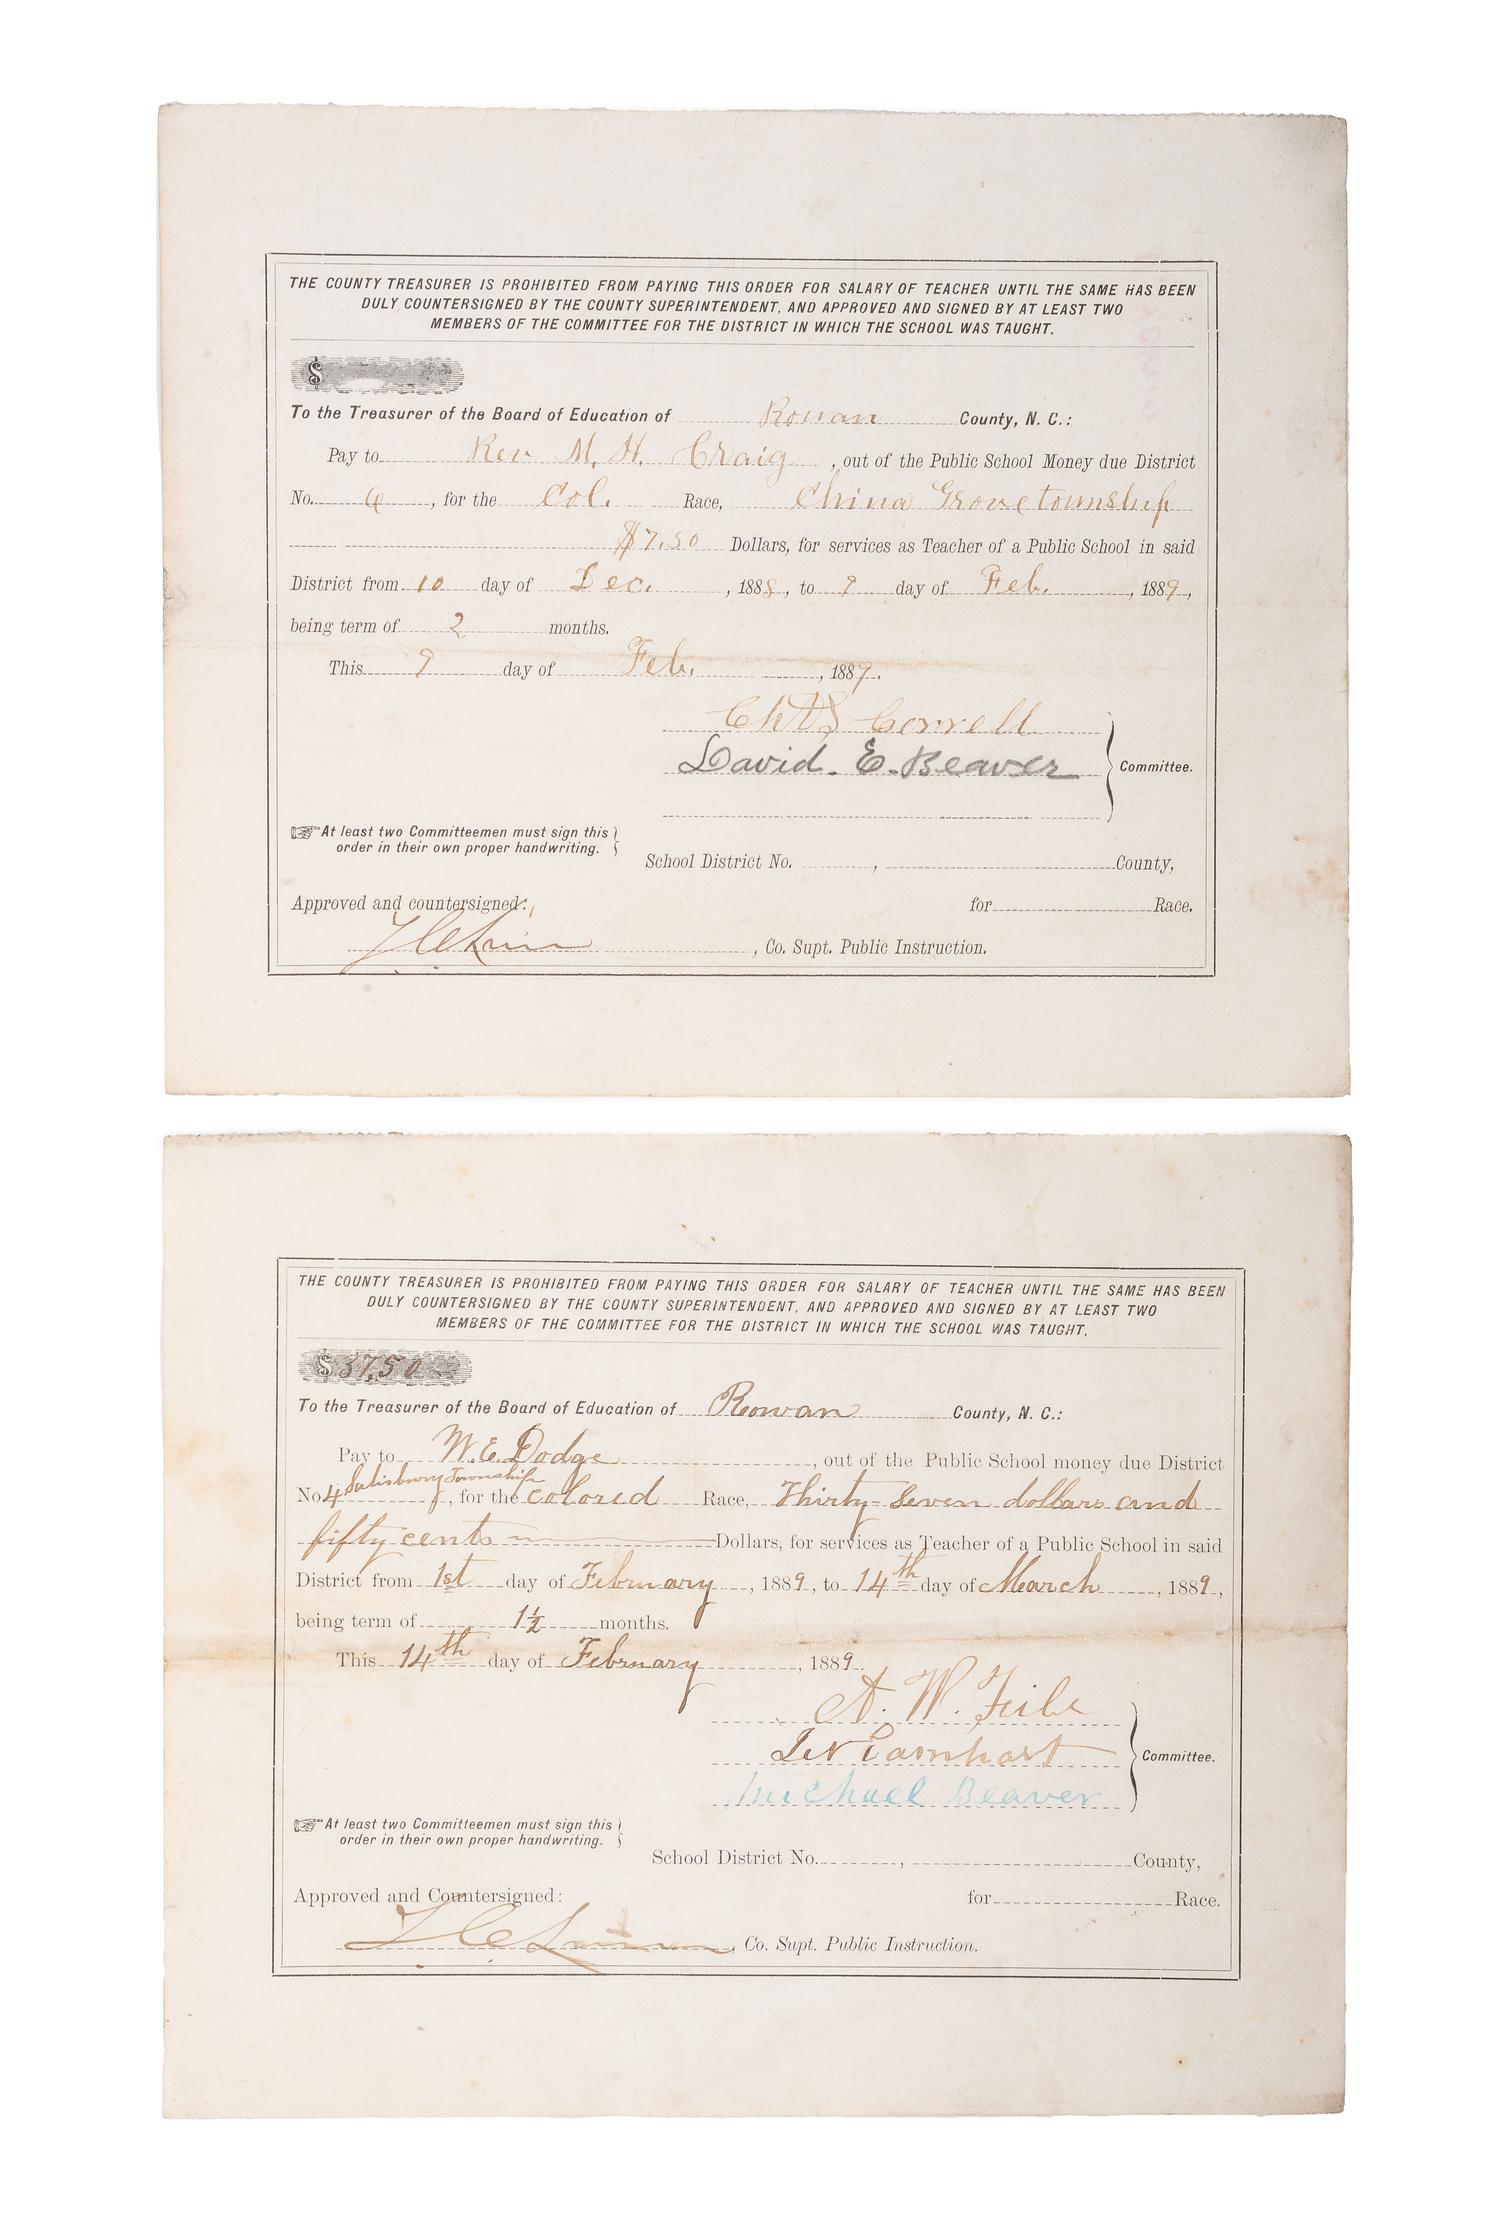 THE COUNTY TREASURER IS PROHIBITED FROM PAYING THIS ORDER FOR SALARY OF TEACHER UNTIL THE SAME HAS BEEN
DULY COUNTERSIGNED BY THE COUNTY SUPERINTENDENT, AND APPROVED AND SIGNED BY AT LEAST TWO
MEMBERS OF THE COMMITTEE FOR THE DISTRICT IN WHICH THE SCHOOL WAS TAUGHT.
$
To the Treasurer of the Board of Education of Rowan County, N. C.:
Pay to Rev M. H. Craig, out of the Public School Money due District
No. 6, for the Col. Race, China Grove township
$7.50 Dollars, for services as Teacher of a Public School in said
District from 10 day of Dec., 1888, to 9 day of Feb., 1889,
being term of 2 months.
This 9 day of Feb., 1889.
Chas Correll
David. E. Beaver
Committee.
At least two Committeemen must sign this
order in their own proper handwriting.
School District No. , County,
Approved and countersigned: for Race.
T C Linn, Co. Supt. Public Instruction.
THE COUNTY TREASURER IS PROHIBITED FROM PAYING THIS ORDER FOR SALARY OF TEACHER UNTIL THE SAME HAS BEEN
DULY COUNTERSIGNED BY THE COUNTY SUPERINTENDENT, AND APPROVED AND SIGNED BY AT LEAST TWO
MEMBERS OF THE COMMITTEE FOR THE DISTRICT IN WHICH THE SCHOOL WAS TAUGHT.
$ 37,50
To the Treasurer of the Board of Education of Rowan County, N. C.:
Pay to W. E. Dodge, out of the Public School money due District
No 4 Salisbury Township, for the colored Race, Thirty-Seven dollars and
fifty cents Dollars, for services as Teacher of a Public School in said
District from 1st day of February, 1889, to 14th day of March, 1889,
being term of 1½ months.
This 14th day of February, 1889.
A. W.
Earnhart
Michael Beaver
Committee.
At least two Committeemen must sign this
order in their own proper handwriting.
School District No. , County,
Approved and Countersigned: for Race.
T C Linn, Co. Supt. Public Instruction.